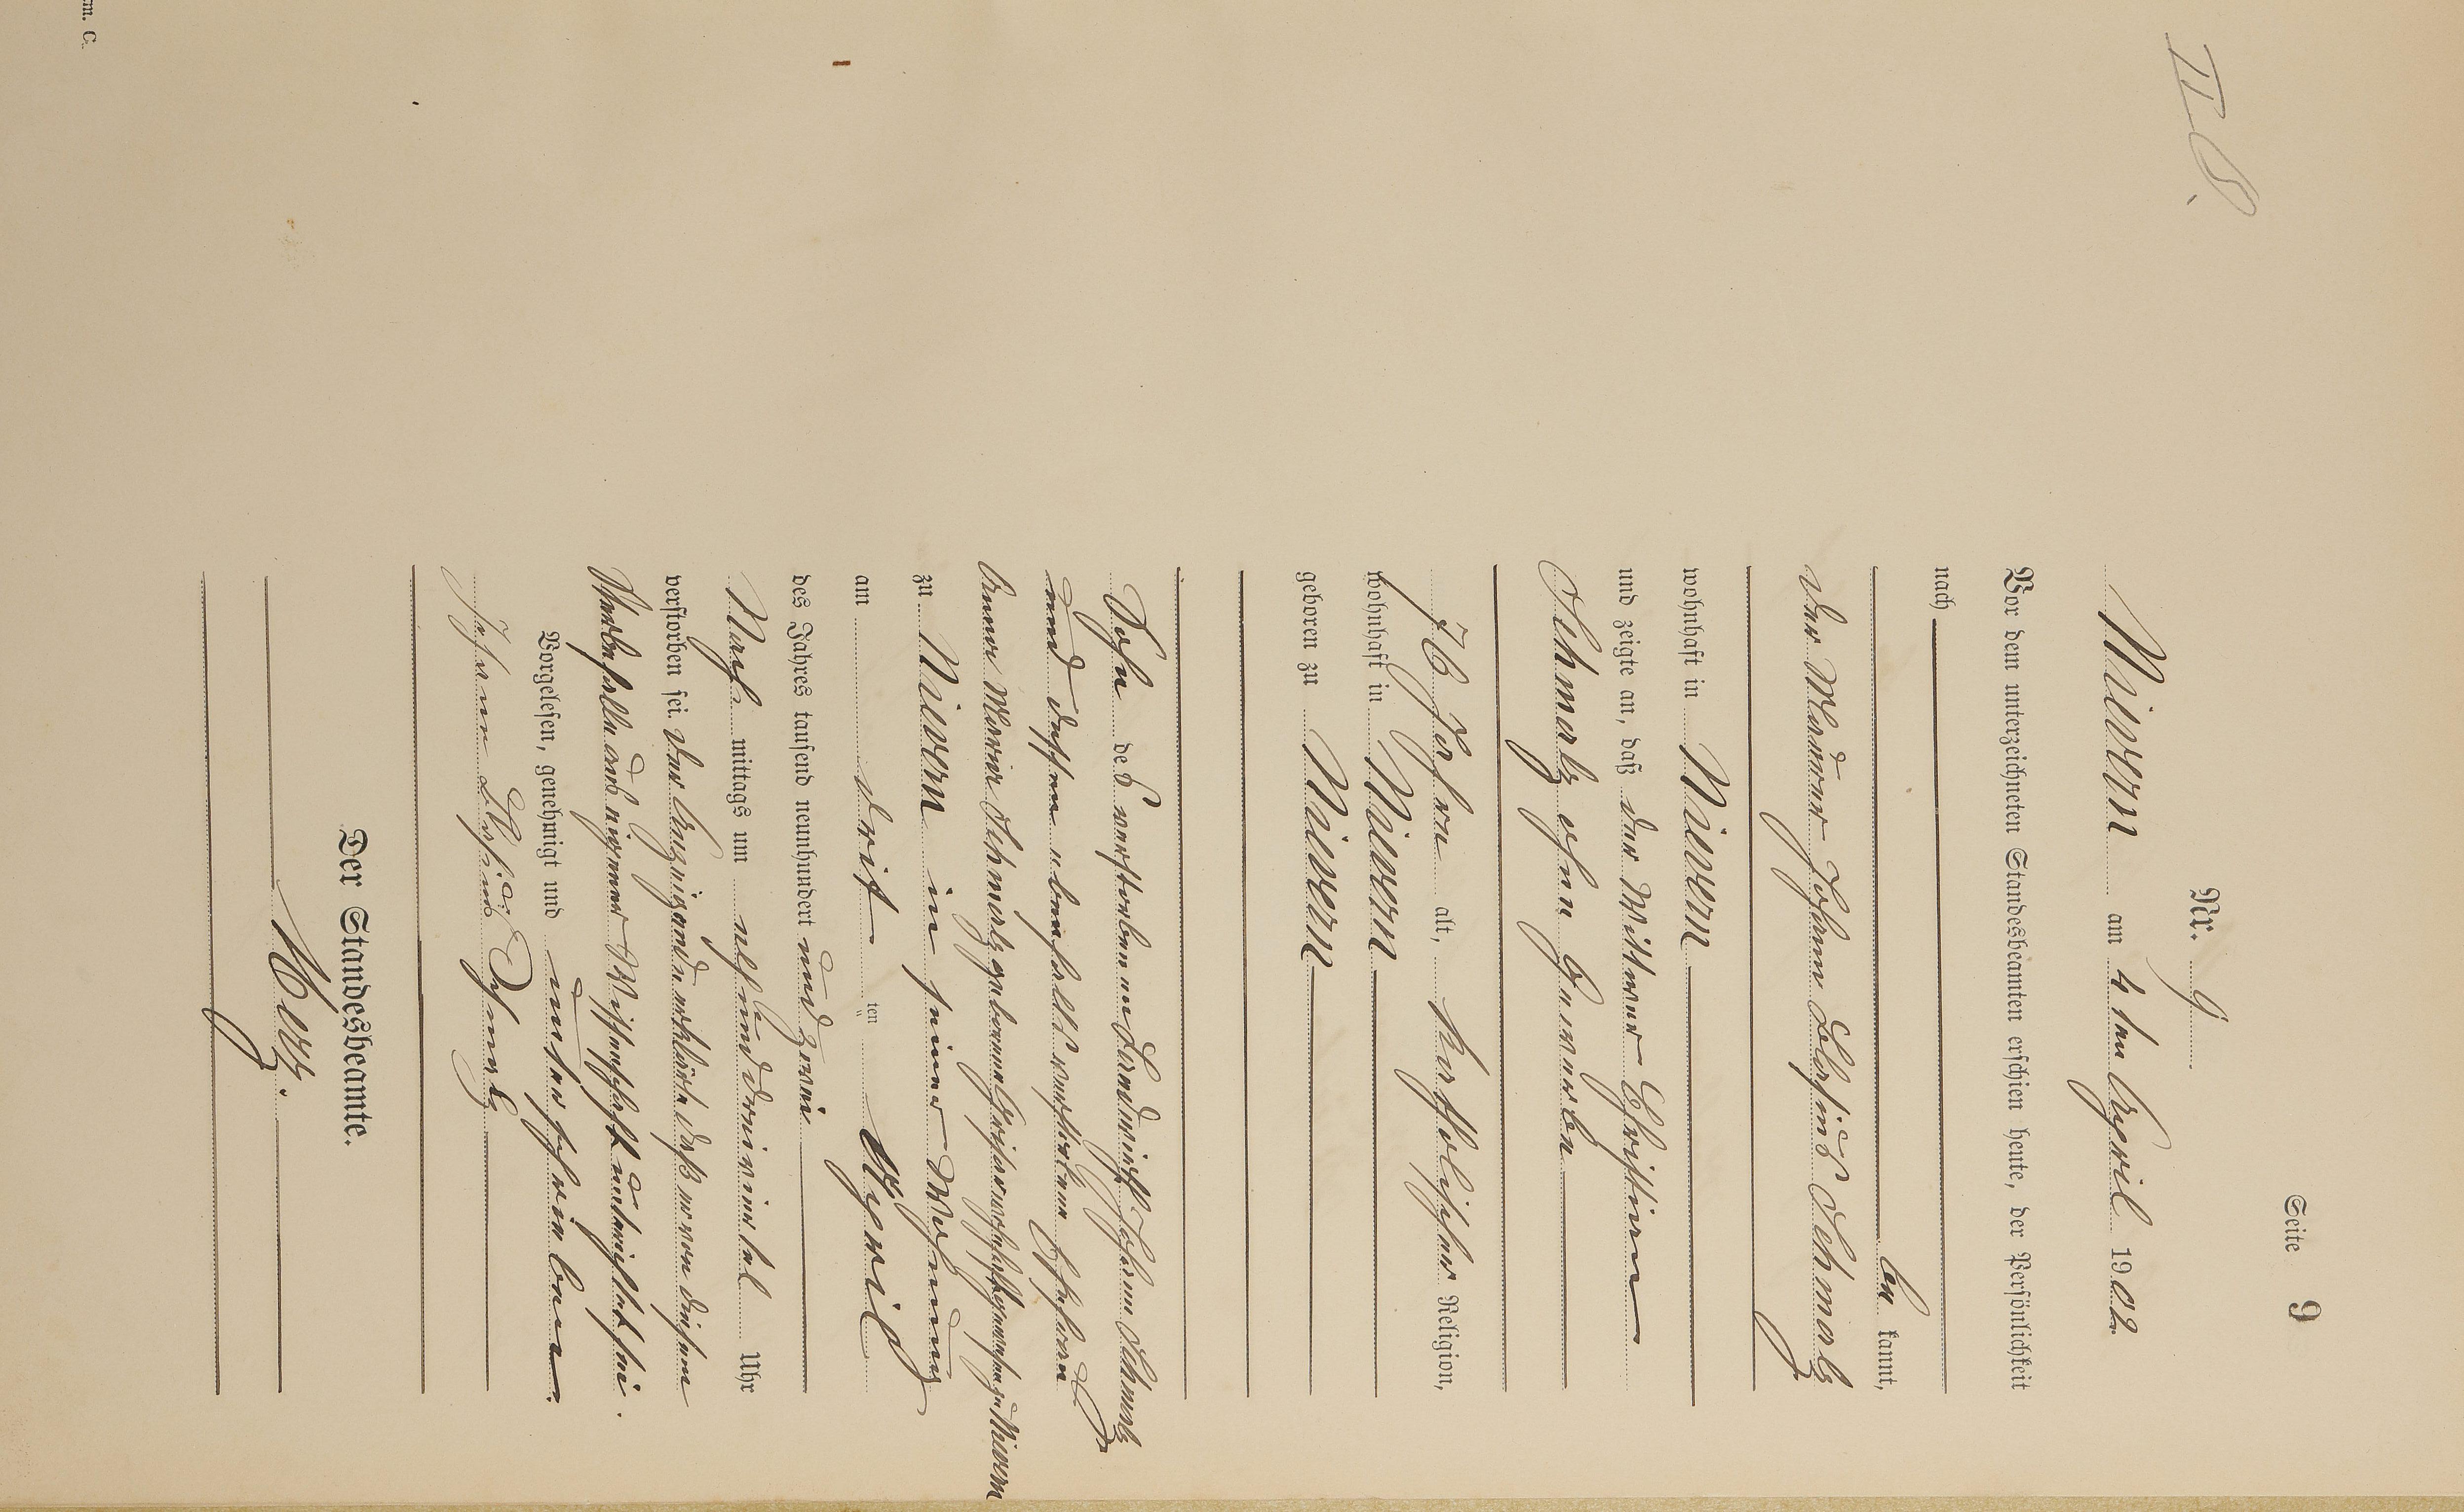 Seite 9
II 8.
Nr. 9
Nievern am 4 ten April 1902
Vor dem unterzeichneten Standesbeamten erschien heute, der Persönlichkeit
nach
be kannt,
der Maurer Johann Schmalz
wohnhaft in Nievern
und zeigte an, daß der Wittwer Christian
Schmalz ohne Gewerbe
76 Jahre alt, katholischer Religion,
wohnhaft in Nievern
geboren zu Nievern
Sohn des verstorbenen Johann Schmalz
und dessen ebenfalls verstorbenen Ehefrau
Anna Maria Schmalz geborene gewesen zu Nievern
zu Nievern in seiner Wohnung
am drit ten April
des Jahres tausend neunhundert und zwei
Nach mittags um acht und dreiviertel Uhr
verstorben sei. Der Anzeigende erklärte daß er von diesem
Sterbefalle aus eigener Wissenschaft unterrichtet sei.
Vorgelesen, genehmigt und unterschrieben
Johann Schmalz
Der Standesbeamte.
m. C.